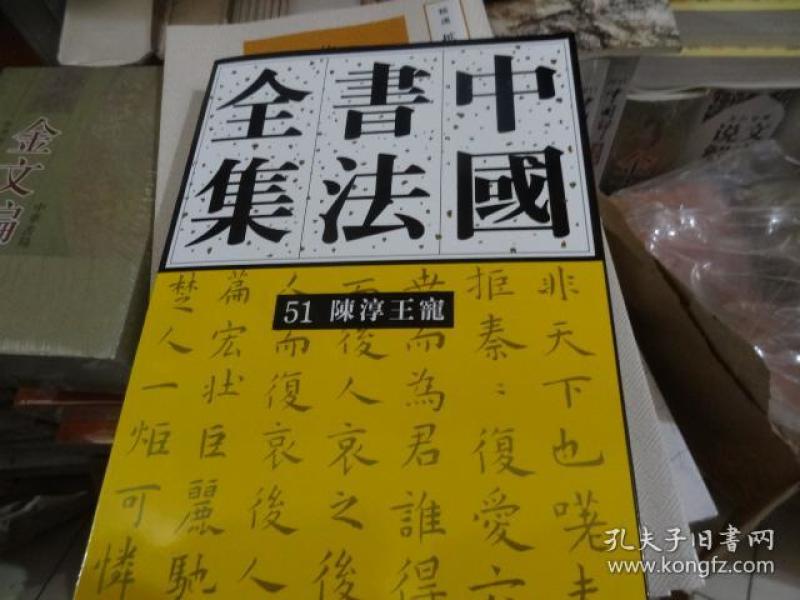 中國
書法
全集
51 陳淳王寵
非天下也嗟
拒秦〻復愛六
世而為君誰得
而後人哀之後
人而復哀後人
篇宏壯巨麗馳
楚人一炬可憐
金文編
中華書局
说文解
孔夫子旧书网
www.kongfz.com